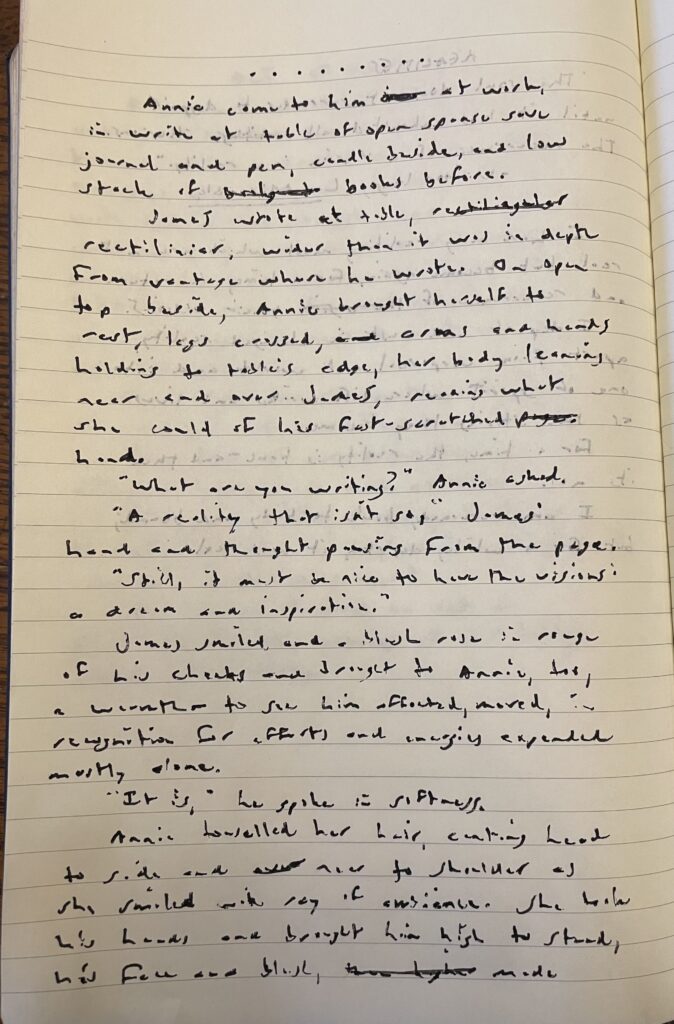 . . . . . . . . .
Annie come to him at work,
in write at table of open sparse save
journal and pen, candle beside, and low
stack of books before.
James wrote at table,
rectilinier, wider than it was in depth
from vantage where he wrote. On open
top beside, Annie brought herself to
rest, legs crossed, arms and hands
holding to table's edge, her body leaning
near and over James, reading what
she could of his fast-scratched
hand.
"What are you writing?" Annie asked.
"A reality that isn't so," James'
hand and thought pausing from the page.
"Still, it must be nice to have the visions:
a dream and inspiration."
James smiled and a blush rose in rouge
of his cheeks and brought to Annie, too,
a warmth to see him affected, moved, in
recognition for efforts and energies expended
mostly alone.
"It is," he spoke in softness.
Annie touselled her hair, head
to side and near to shoulder as
she smiled with ray of ambience. She took
his hands and brought him high to stand,
his face and blush, made